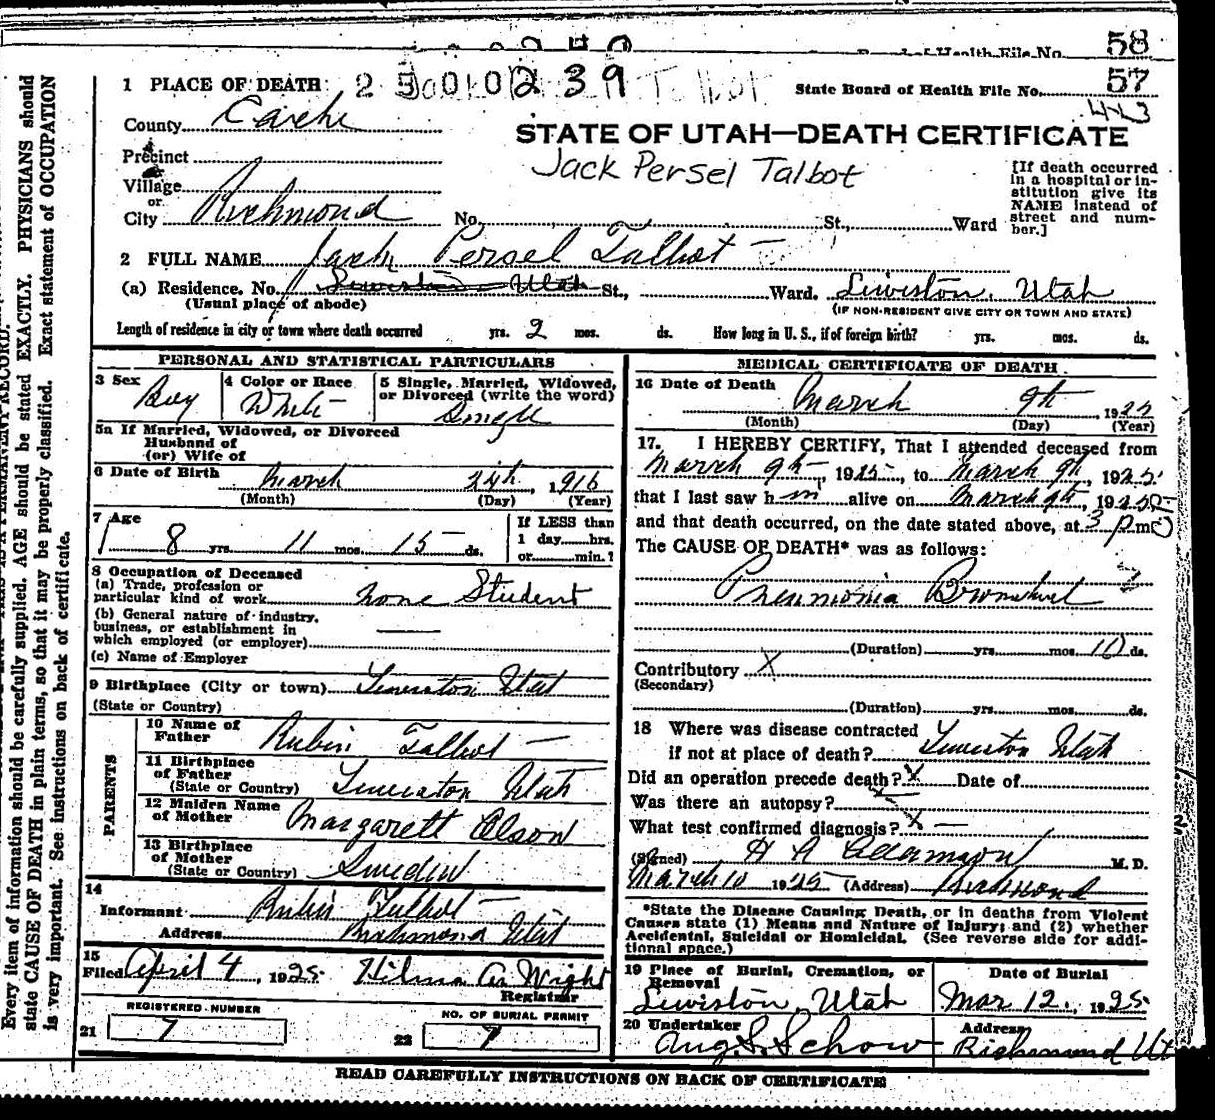 Board of Health File No. 58
1 PLACE OF DEATH
State Board of Health File No. 57
County Cache
STATE OF UTAH—DEATH CERTIFICATE
Precinct
Jack Persel Talbot
[If death occurred in a hospital or institution give its NAME instead of street and number.]
Village
or
City Richmond No. St., Ward
2 FULL NAME Jack Persel Talbot
(a) Residence. No. Lewiston Utah St., Ward. Lewiston, Utah
(Usual place of abode) (IF NON-RESIDENT GIVE CITY OR TOWN AND STATE)
Length of residence in city or town where death occurred yrs. 2 mos. ds. How long in U. S., if of foreign birth? yrs. mos. ds.
PERSONAL AND STATISTICAL PARTICULARS
3 Sex Boy
4 Color or Race White
5 Single, Married, Widowed, or Divorced (write the word) Single
5a If Married, Widowed, or Divorced
Husband of
(or) Wife of
6 Date of Birth March 24th, 1916
(Month) (Day) (Year)
7 Age
8 yrs. 11 mos. 15 ds.
If LESS than
1 day hrs.
or min.?
8 Occupation of Deceased
(a) Trade, profession or
particular kind of work none Student
(b) General nature of industry,
business, or establishment in
which employed (or employer)
(c) Name of Employer
9 Birthplace (City or town) Lewiston Utah
(State or Country)
PARENTS
10 Name of
Father Rubin Talbot
11 Birthplace
of Father
(State or Country) Lewiston Utah
12 Maiden Name
of Mother Margarett Olson
13 Birthplace
of Mother
(State or Country) Sweden
14
Informant Rubin Talbot
Address Richmond Utah
15
Filed April 4, 1925. Hilma A. Wright
Registrar
REGISTERED NUMBER
21 7
NO. OF BURIAL PERMIT
22 7
MEDICAL CERTIFICATE OF DEATH
16 Date of Death March 9th, 1925
(Month) (Day) (Year)
17. I HEREBY CERTIFY, That I attended deceased from
March 9th, 1925, to March 9th, 1925
that I last saw h im alive on March 9th, 1925
and that death occurred, on the date stated above, at 3 p.m.
The CAUSE OF DEATH* was as follows:
Pneumonia Bronchial
(Duration) yrs. mos. 10 ds.
Contributory X
(Secondary)
(Duration) yrs. mos. ds.
18 Where was disease contracted
if not at place of death? Lewiston Utah
Did an operation precede death? X Date of
Was there an autopsy?
What test confirmed diagnosis? X
(Signed) H A Adamson M. D.
March 10 1925 (Address) Richmond
*State the Disease Causing Death, or in deaths from Violent
Causes state (1) Means and Nature of Injury; and (2) whether
Accidental, Suicidal or Homicidal. (See reverse side for addi-
tional space.)
19 Place of Burial, Cremation, or
Removal
Lewiston, Utah
Date of Burial
Mar 12., 1925.
20 Undertaker
Aug. S. Schow
Address
Richmond Ut
READ CAREFULLY INSTRUCTIONS ON BACK OF CERTIFICATE
Every item of information should be carefully supplied. AGE should be stated EXACTLY. PHYSICIANS should
state CAUSE OF DEATH in plain terms, so that it may be properly classified. Exact statement of OCCUPATION
is very important. See instructions on back of certificate.